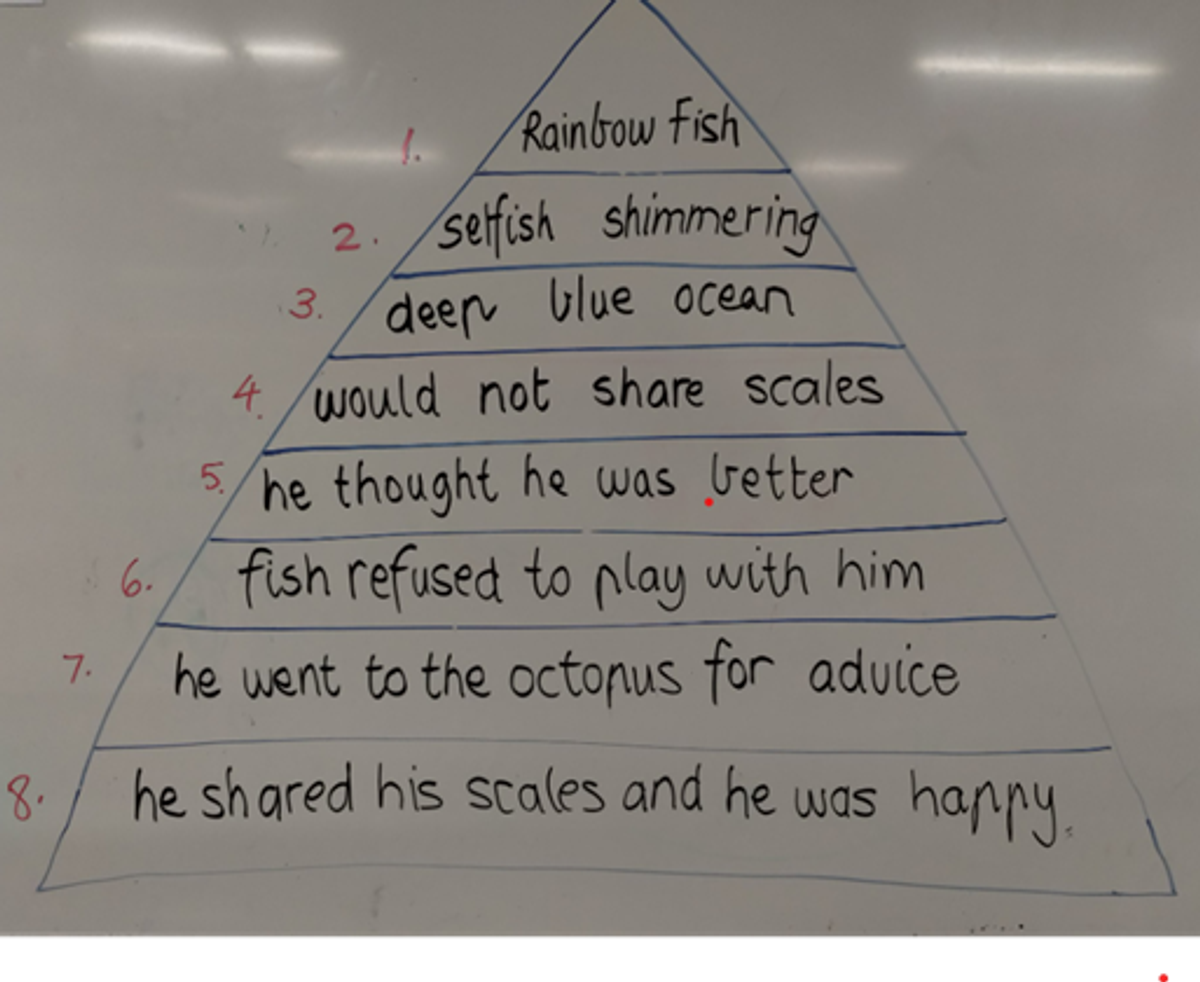 1. Rainbow Fish
2. selfish shimmering
3. deep blue ocean
4. would not share scales
5. he thought he was better
6. fish refused to play with him
7. he went to the octopus for advice
8. he shared his scales and he was happy.